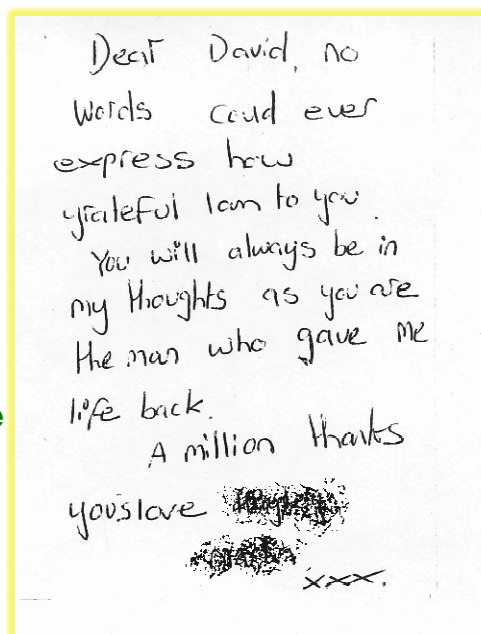 Dear David, no
words could ever
express how
grateful I am to you.
You will always be in
my thoughts as you are
the man who gave me
life back.
A million thanks
you's love
xxx.